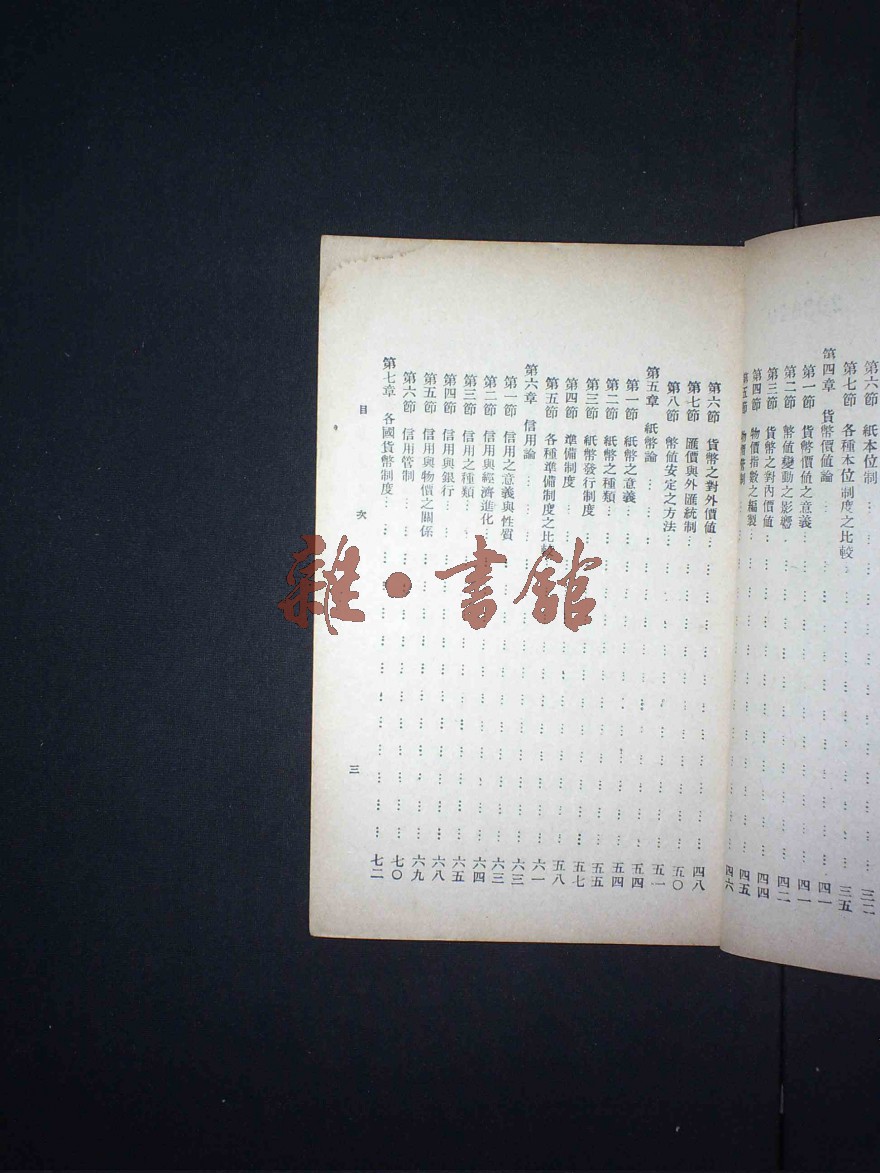 第六節 紙本位制……三二
第七節 各種本位制度之比較……三五
第四章 貨幣價值論……四一
第一節 貨幣價值之意義……四一
第二節 幣值變動之影響……四二
第三節 貨幣之對內價值……四四
第四節 物價指數之編製……四五
第五節 物價管制……四六
第六節 貨幣之對外價值……四八
第七節 匯價與外匯統制……五〇
第八節 幣值安定之方法……五一
第五章 紙幣論……五四
第一節 紙幣之意義……五四
第二節 紙幣之種類……五五
第三節 紙幣發行制度……五七
第四節 準備制度……五八
第五節 各種準備制度之比較……六一
第六章 信用論……六三
第一節 信用之意義與性質……六三
第二節 信用與經濟進化……六四
第三節 信用之種類……六五
第四節 信用與銀行……六八
第五節 信用與物價之關係……六九
第六節 信用管制……七〇
第七章 各國貨幣制度……七二
目次 三
雜·書館